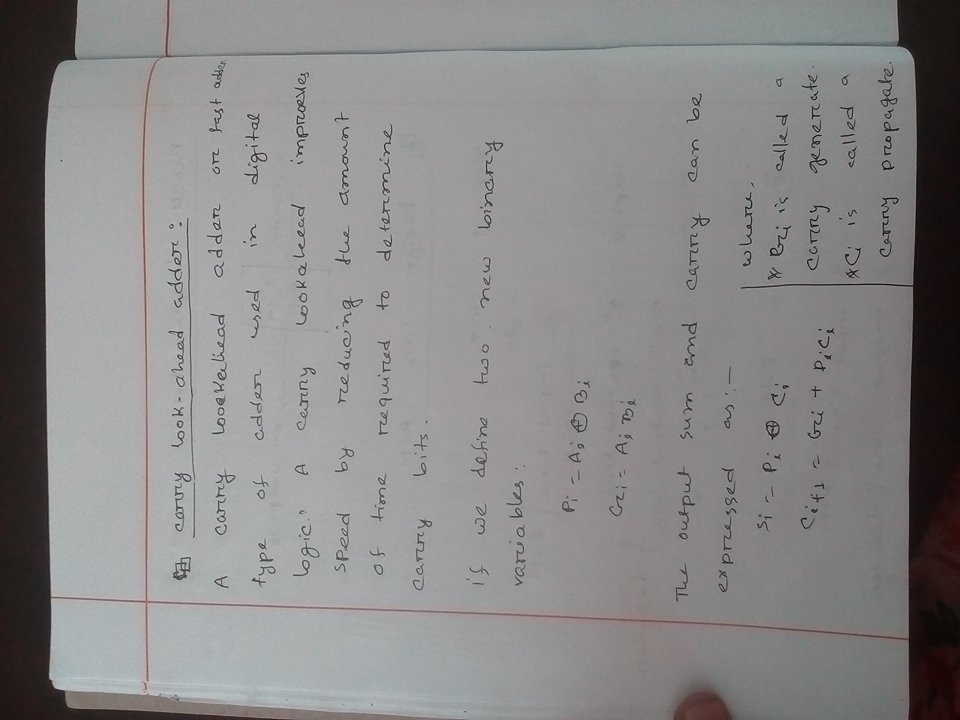 carry look-ahead adder:
A carry lookahead adder or fast adder
type of adder used in digital
logic. A carry lookahead improves
speed by reducing the amount
of time required to determine
carry bits.
if we define two new binary
variables:
Pi = Ai ⊕ Bi
Gi = Ai Bi
The output sum and carry can be
expressed as:-
Si = Pi ⊕ Ci
Ci+1 = Gi + PiCi
where,
* Gi is called a
carry generate.
* Ci is called a
carry propagate.